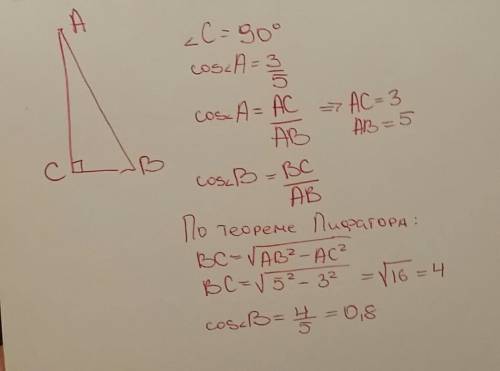 A
C
B
∠C = 90°
cos∠A = 3/5
cos∠A = AC/AB ⇒ AC = 3
AB = 5
cos∠B = BC/AB
По теореме Пифагора:
BC = √(AB² − AC²)
BC = √(5² − 3²) = √16 = 4
cos∠B = 4/5 = 0,8